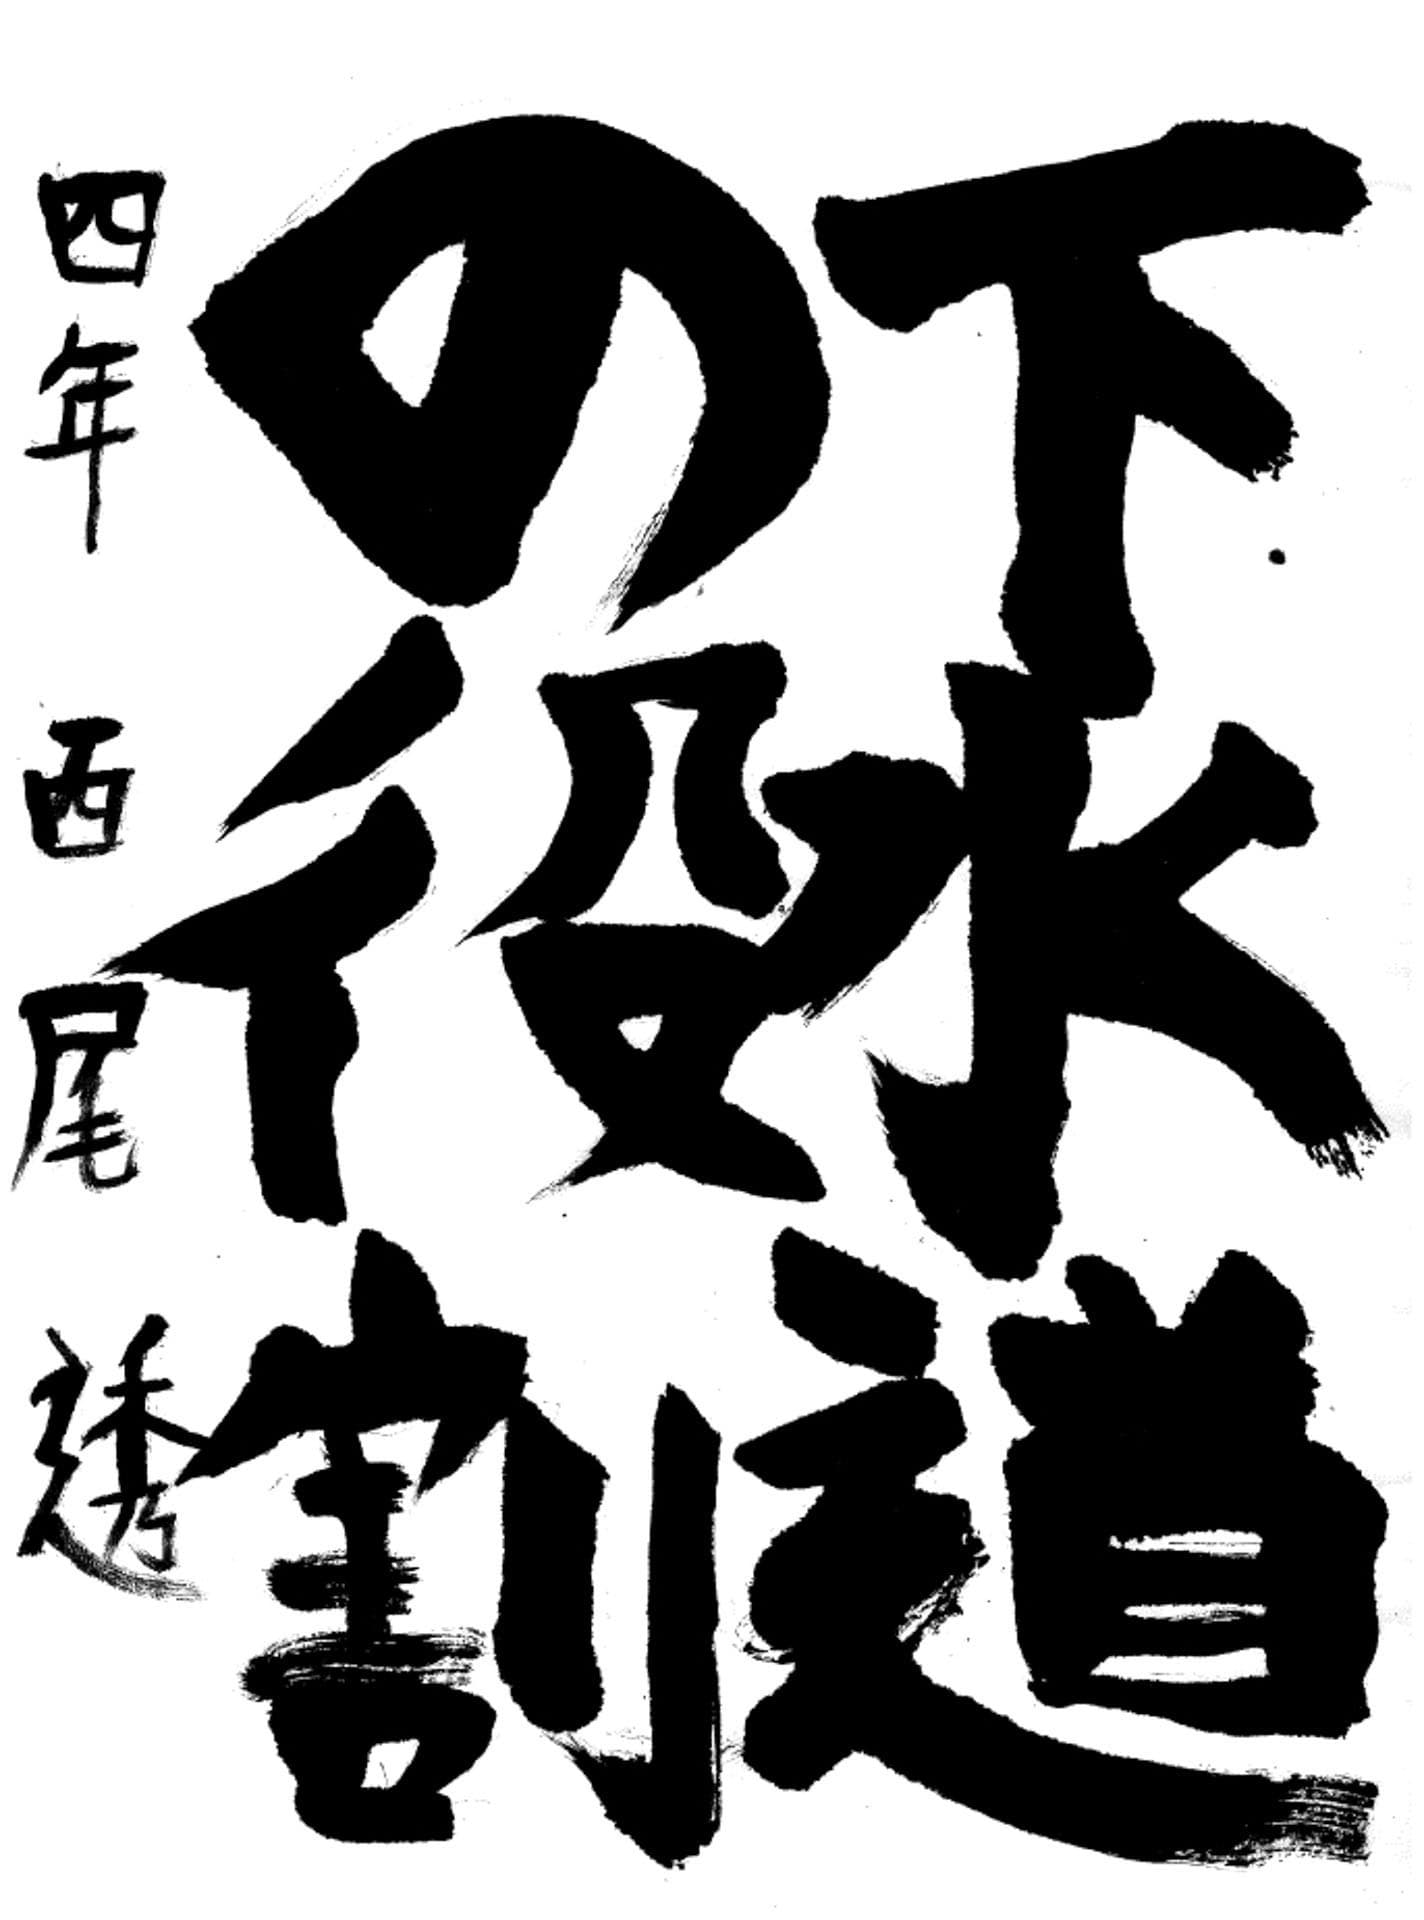 下水道
の役割
四年 西尾 透